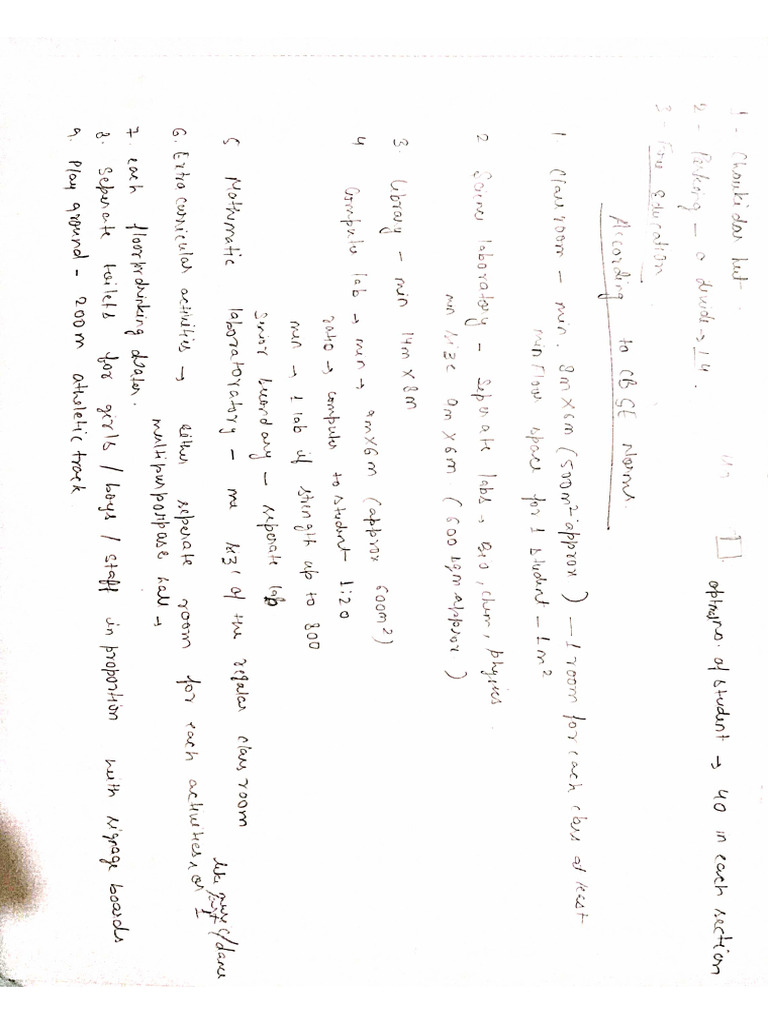 1 - Choukidar hut.
2 - Parking - a divide → 14.
3 - Free education
opt no. of student → 40 in each section
According to CBSE Norms.
1. Classroom - min. 8m x 6m (500m² approx) - 1 room for each class at least
min floor space for 1 student - 1m²
2 Science laboratory - Seperate labs → Bio, chem, physics.
min size 9m x 6m (600 sqm approx)
3. Library - min 14m x 8m
4 Compute lab → min → 9mx6m (approx 600m²)
ratio → computer to student 1:20
min → 1 lab if strength up to 800
Senior secondary - seperate lab
5 Mathematic laboratoratory - size of the regular class room
6. Extra curricular activities → either seperate room for each activities or 1
like music/dance
multipurporpase hall →
7. each floor drinking water.
8. Seperate toilets for girls / boys / staff in proportion with signage boards
9. Play ground - 200m atheletic track